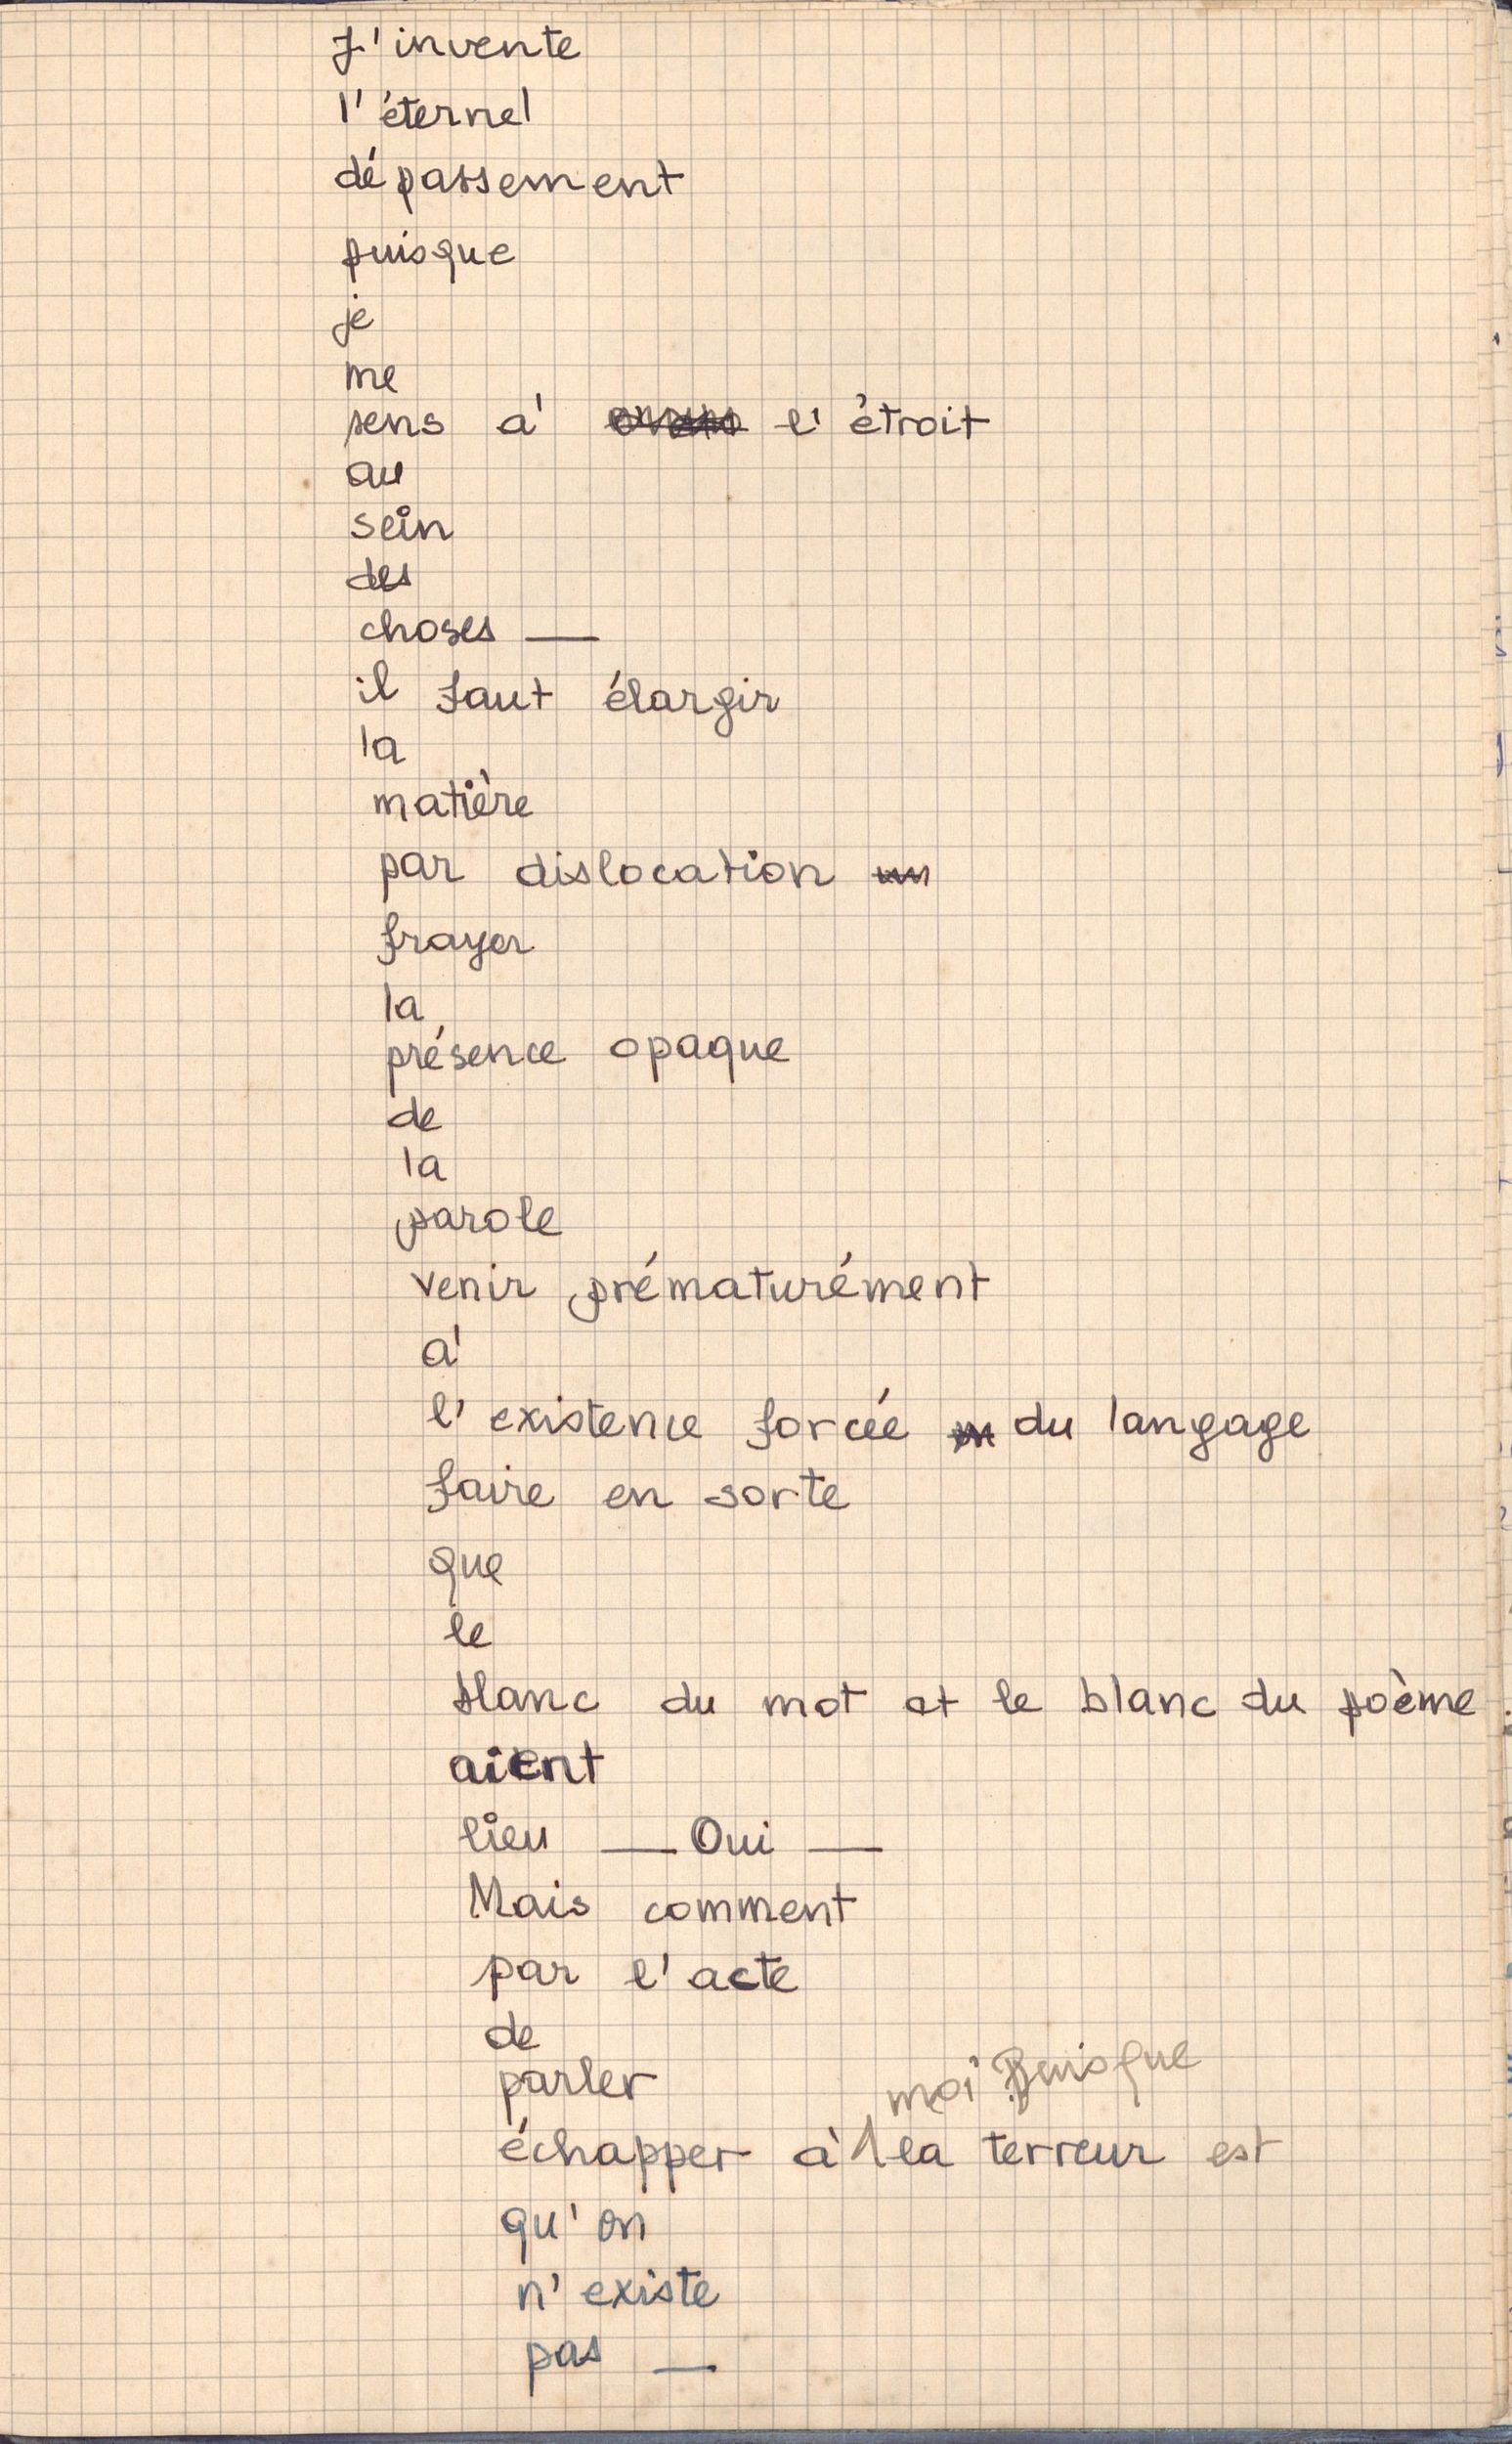 J'invente
l'éternel
dépassement
puisque
je
me
sens à l'étroit
au
sein
des
choses —
il faut élargir
la
matière
par dislocation
frayer
la
présence opaque
de
la
parole
venir prématurément
à
l'existence forcée du langage
faire en sorte
que
le
blanc du mot et le blanc du poème
aient
lieu — Oui —
Mais comment
par l'acte
de
parler
moi puisque
échapper à la terreur est
qu'on
n'existe
pas —